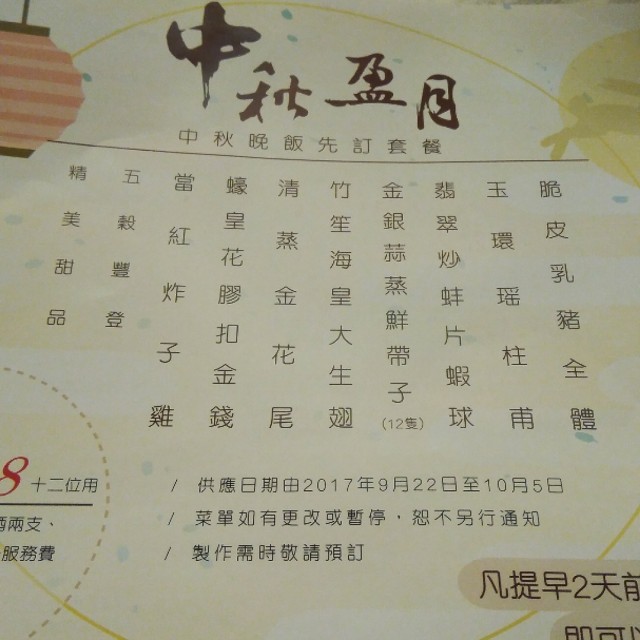 中秋盈月
中秋晚飯先訂套餐
脆皮乳豬全體
玉環瑤柱甫
翡翠炒蚌片蝦球
金銀蒜蒸鮮帶子(12隻)
竹笙海皇大生翅
清蒸金花尾
蠔皇花膠扣金錢
當紅炸子雞
五穀豐登
精美甜品
8 十二位用
酒兩支、
服務費
/ 供應日期由2017年9月22日至10月5日
/ 菜單如有更改或暫停,恕不另行通知
/ 製作需時敬請預訂
凡提早2天前
即可以